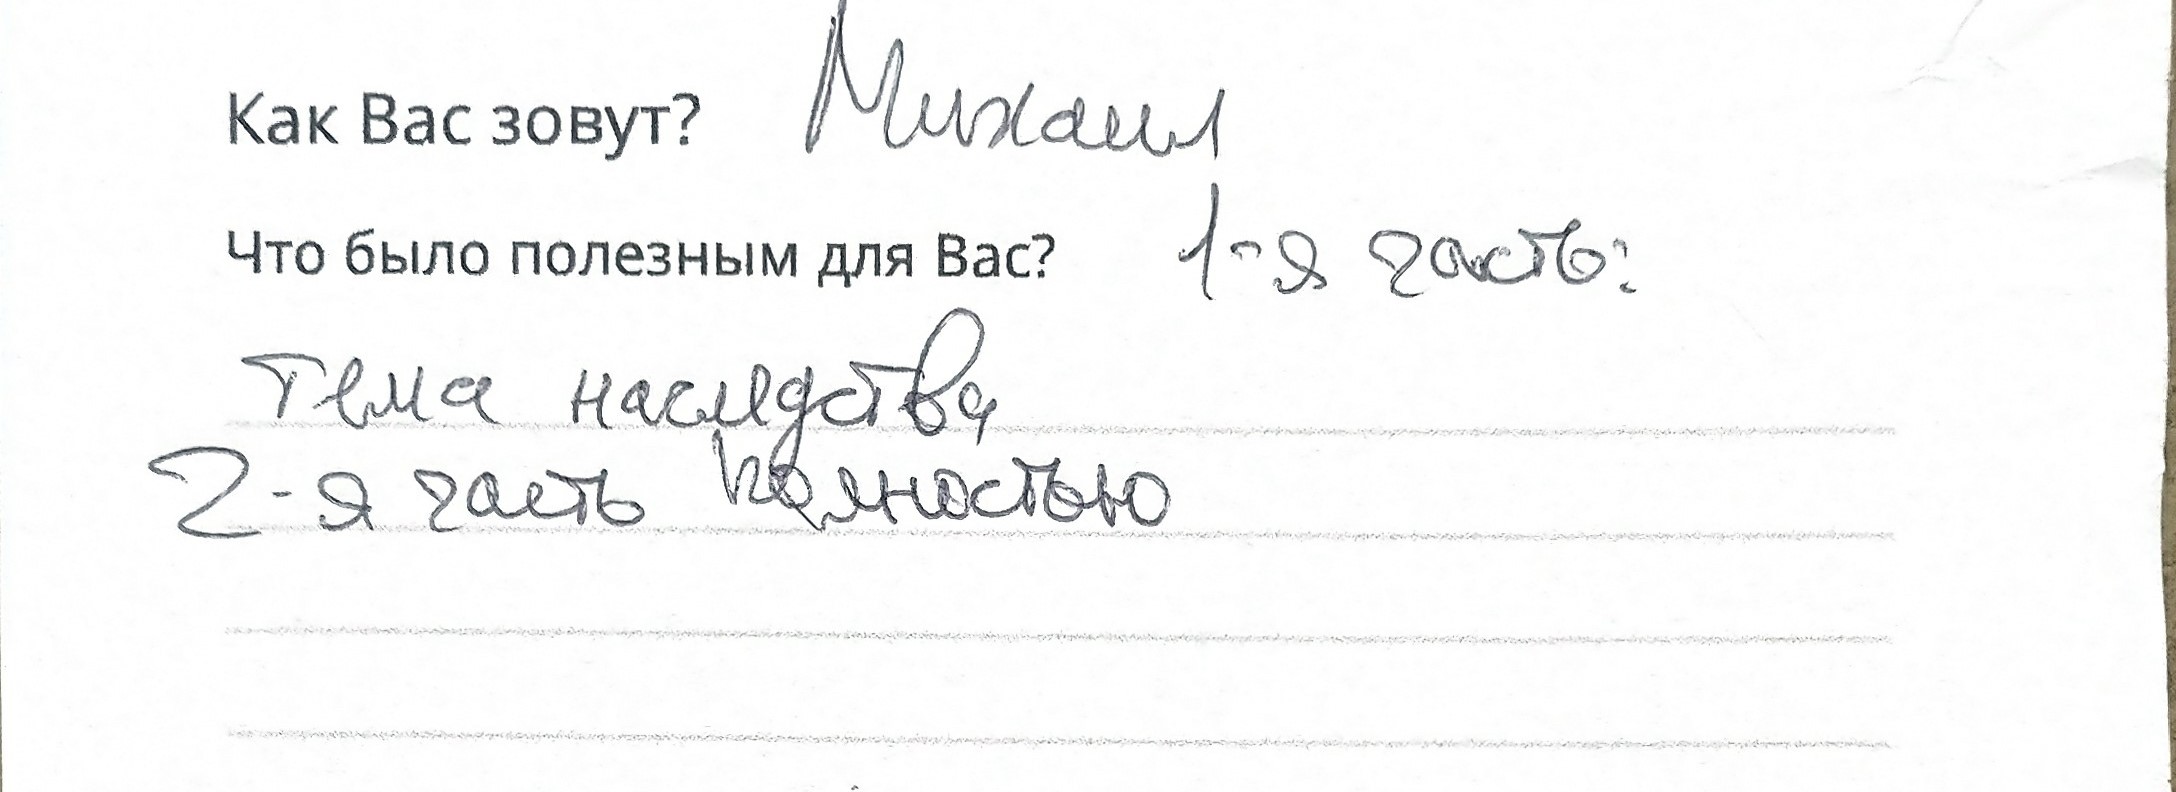 Как Вас зовут? Михаил
Что было полезным для Вас? 1-я часть:
Тема наследства
2-я часть полностью